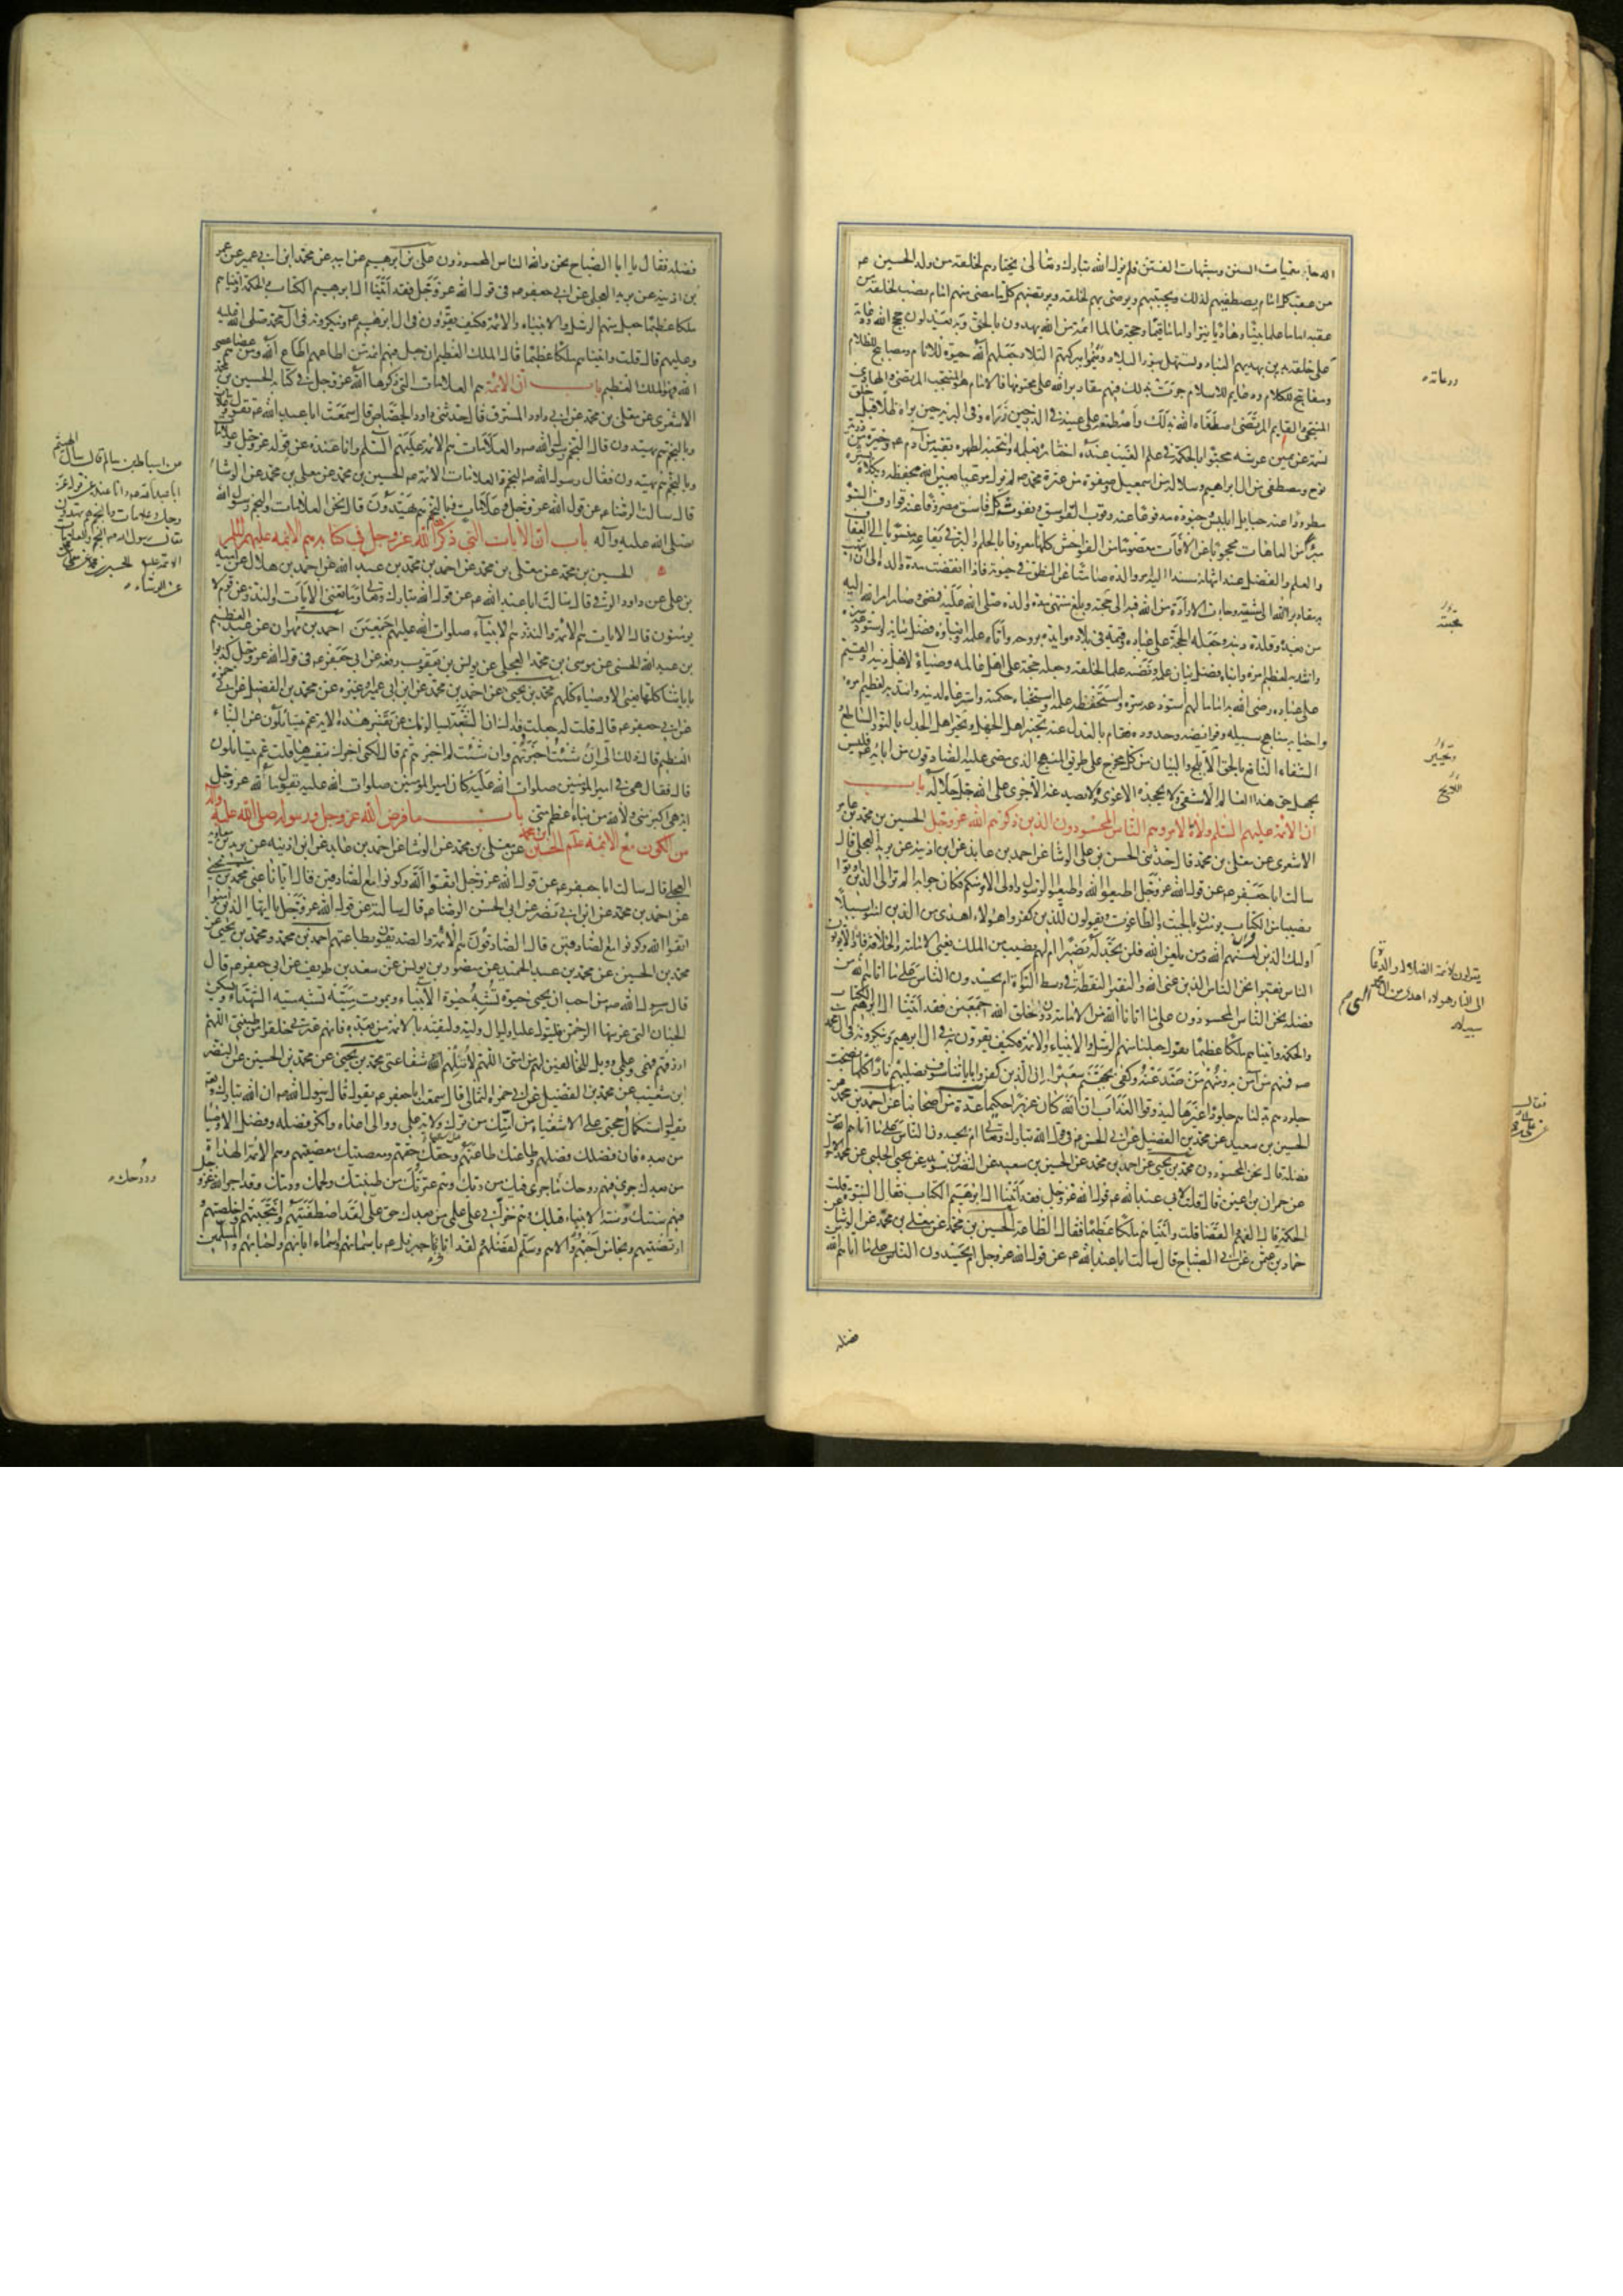 الدجا ومعميات السنن ومشبهات الفتن فلم يزل الله تبارك وتعالى يختارهم لخلقه من ولد الحسين عم
من عقب كل امام يصطفيهم لذلك ويجتبيهم ويرضى بهم لخلقه ويرتضيهم كل ما مضى منهم امام نصب لخلقه من
عقبه اماما علما بينا وهاديا نيرا واماما قيما وحجة عالما ائمة من الله يهدون بالحق وبه يعدلون حجج الله ودعاته
على خلقه يدين بهديهم العباد وتستهل بنورهم البلاد وينموا ببركتهم التلاد جعلهم الله حيوة للانام ومصابيح للظلام
ومفاتيح للكلام ودعايم للاسلام جرت بذلك فيهم مقادير الله على محتومها فالامام هو المنتجب المرتضى والهادى
المنتجى والقايم المرتجى اصطفاه الله بذلك واصطنعه على عينه فى الذر حين ذراه وفى البرية حين براه ظلا قبل خلق
نسمة عن يمين عرشه محبوا بالحكمة فى علم الغيب عنده اختاره بعلمه وانتجبه لطهره بقية من آدم عم وخيرة من ذرية
نوح ومصطفى من آل ابراهيم وسلالة من اسمعيل وصفوة من عترة محمد صم لم يزل مرعيا بعين الله يحفظه ويكلاه بستره
مطرودا عنه حبايل ابليس وجنوده مدفوعا عنه وقوب الغواسق ونفوث كل فاسق مصروفا عنه قوارف السوء
مبرأ من العاهات محجوبا عن الآفات معصوما من الفواحش كلها معروفا بالحلم والبر فى يفاعه منسوبا الى العفاف
والعلم والفضل عند انتهائه مسندا اليه امر والده صامتا عن المنطق فى حيوته فاذا انقضت مدة والده الى ان انتهت
به مقادير الله الى مشيته وجاءت الارادة من الله فيه الى حجته وبلغ منتهى مدة والده صلى الله عليه فمضى وصار امر الله اليه
من بعده وقلده دينه وجعله الحجة على عباده وقيمه فى بلاده وايده بروحه وآتاه علمه وانبأه فصل بيانه واستودعه سره
وانتدبه لعظيم امره وانباه فضل بيان علمه ونصبه علما لخلقه وجعله حجة على اهل عالمه وضياء لاهل دينه والقيم
على عباده رضى الله به اماما لهم استودعه سره واستحفظه علمه واستخباه حكمته واسترعاه لدينه وانتدبه لعظيم امره
واحيا به مناهج سبيله وفرائضه وحدوده فقام بالعدل عند تحير اهل الجهل وتحير اهل الجدل بالنور الساطع
الشفاء النافع بالحق الابلج والبيان من كل مخرج على طريق المنهج الذى مضى عليه الصادقون من آبائه عم فليس
يجهل حق هذا العالم الا شقى ولا يجحده الا غوى ولا يصد عنه الا جرى على الله جل جلاله باب
ان الائمة عليهم السلم ولاة الامر وهم الناس المحسودون الذين ذكرهم الله عز وجل الحسين بن محمد بن عامر
الاشعرى عن معلى بن محمد قال حدثنى الحسن بن على الوشا عن احمد بن عايذ عن ابن اذينه عن بريد العجلى قال
سالت ابا جعفر عم عن قول الله عز وجل اطيعوا الله واطيعوا الرسول واولى الامر منكم فكان جوابه الم تر الى الذين اوتوا
نصيبا من الكتاب يؤمنون بالجبت والطاغوت ويقولون للذين كفروا هؤلاء اهدى من الذين امنوا سبيلا
اولئك الذين لعنهم الله ومن يلعن الله فلن تجد له نصيرا ام لهم نصيب من الملك يعنى الامامة والخلافة فاذا لا يؤتون
الناس نقيرا نحن الناس الذين عنى الله والنقير النقطة التى فى وسط النواة ام يحسدون الناس على ما اتاهم الله من
فضله نحن الناس المحسودون على ما اتانا الله من الامامة دون خلق الله اجمعين فقد اتينا ال ابرهيم الكتاب
والحكمة واتيناهم ملكا عظيما يقول جعلنا منهم الرسل والانبياء والائمة فكيف يقرون به فى ال ابرهيم وينكرونه فى ال محمد
صم فمنهم من آمن به ومنهم من صد عنه وكفى بجهنم سعيرا ان الذين كفروا باياتنا سوف نصليهم نارا كلما نضجت
جلودهم بدلناهم جلودا غيرها ليذوقوا العذاب ان الله كان عزيزا حكيما عدة من اصحابنا عن احمد بن محمد عن
الحسين بن سعيد عن محمد بن الفضيل عن ابى الحسن عم فى قول الله تبارك وتعالى ام يحسدون الناس على ما آتاهم الله من
فضله قال نحن المحسودون محمد بن يحيى عن احمد بن محمد عن الحسين بن سعيد عن النضر بن سويد عن يحيى الحلبى عن محمد الاحول
عن حمران بن اعين قال قلت لابى عبد الله عم قول الله عز وجل فقد آتينا ال ابرهيم الكتاب فقال النبوة قلت
الحكمة قال الفهم والقضا قلت وآتيناهم ملكا عظيما فقال الطاعة الحسين بن محمد عن معلى بن محمد عن الوشا عن
حماد بن عثمن عن ابى الصباح قال سالت ابا عبد الله عم عن قول الله عز وجل ام يحسدون الناس على ما اتاهم الله
فضله
ودعاته
محبته
وتحيير
يقولون لائمة الضلالة والدعاة
الى النار هؤلاء اهدى من آل محمد
سبيلا
فقال
فضله فقال يا ابا الصباح نحن والله الناس المحسودون على بن ابرهيم عن ابيه عن محمد ابن ابى عمير عن عمر
بن اذينه عن بريد العجلى عن ابى جعفر عم فى قول الله عز وجل فقد آتينا ال ابرهيم الكتاب والحكمة واتيناهم
ملكا عظيما جعل منهم الرسل والانبياء والائمة فكيف يقرون فى ال ابرهيم عم وينكرونه فى آل محمد صلى الله عليه
وعليهم قال قلت واتيناهم ملكا عظيما قال الملك العظيم ان جعل فيهم ائمة من اطاعهم اطاع الله ومن عصاهم عصى
الله فهو الملك العظيم باب ان الائمة هم العلامات التى ذكرها الله عز وجل فى كتابه الحسين بن محمد
الاشعرى عن معلى بن محمد عن ابى داود المسترق قال حدثنى داود الجصاص قال سمعت ابا عبد الله عم يقول وعلامات
وبالنجم هم يهتدون قال النجم رسول الله صم والعلامات هم الائمة عليهم السلم
وبالنجم هم يهتدون فقال رسول الله صم النجم والعلامات الائمة عم الحسين بن محمد عن معلى بن محمد عن الوشا
قال سالت الرضا عم عن قول الله عز وجل وعلامات وبالنجم هم يهتدون قال نحن العلامات والنجم رسول الله
صلى الله عليه وآله باب ان الايات التى ذكرها الله عز وجل فى كتابه هم الائمه عليهم السلم
الحسين بن محمد عن معلى بن محمد عن احمد بن محمد بن عبد الله عن احمد بن هلال عن اميه
بن على عن داود الرقى قال سالت ابا عبد الله عم عن قول الله تبارك وتعالى وما تغنى الآيات والنذر عن قوم لا
يؤمنون قال الايات هم الائمة والنذر هم الانبياء صلوات الله عليهم اجمعين احمد بن مهران عن عبد العظيم
بن عبد الله الحسنى عن موسى بن محمد العجلى عن يونس بن يعقوب رفعه عن ابى جعفر عم فى قول الله عز وجل كذبوا
باياتنا كلها يعنى الاوصياء كلهم محمد بن يحيى عن احمد بن محمد عن ابن ابى عمير او غيره عن محمد بن الفضيل عن ابى حمزة
عن ابى جعفر عم قال قلت له جعلت فداك ان الشيعة يسالونك عن تفسير هذه الآية عم يتسائلون عن النباء
العظيم قال ذلك الى ان شئت اخبرتهم وان شئت لم اخبرهم ثم قال لكنى اخبرك بتفسيرها قلت عم يتسايلون
قال فقال هى فى امير المؤمنين صلوات الله عليه كان امير المؤمنين صلوات الله عليه يقول ما لله عز وجل
آية هى اكبر منى ولا لله من نباء اعظم منى باب ما فرض الله عز وجل ورسوله صلى الله عليه وآله
من الكون مع الائمه عليهم السلم الحسين بن محمد عن معلى بن محمد عن الوشا عن احمد بن عايذ عن ابن اذينه عن بريد بن معاوية
العجلى قال سالت ابا جعفر عم عن قول الله عز وجل اتقوا الله وكونوا مع الصادقين قال ايانا عنى محمد بن يحيى
عن احمد بن محمد عن ابن ابى نصر عن ابى الحسن الرضا عم قال سالته عن قول الله عز وجل يا ايها الذين آمنوا
اتقوا الله وكونوا مع الصادقين قال الصادقون هم الائمة والصديقون بطاعتهم احمد بن محمد ومحمد بن يحيى عن
محمد بن الحسين عن محمد بن عبد الحميد عن منصور بن يونس عن سعد بن طريف عن ابى جعفر عم قال
قال رسول الله صم من احب ان يحيى حيوة تشبه حيوة الانبياء ويموت ميتة تشبه ميتة الشهداء ويسكن
الجنان التى غرسها الرحمن فليتول عليا وليوال وليه وليقتد بالائمة من بعده فانهم عترتى خلقوا من طينتى اللهم
ارزقهم فهمى وعلمى وويل للمخالفين لهم من امتى اللهم لا تنلهم شفاعتى محمد بن يحيى عن محمد بن الحسين عن النضر
ابن شعيب عن محمد بن الفضيل عن ابى حمزة الثمالى قال سمعت ابا جعفر عم يقول قال رسول الله صم ان الله تبارك وتعالى
يقول استكمال حجتى على الاشقياء من امتك من ترك ولاية على ووالى اعداءه وانكر فضله وفضل الاوصيا
من بعده فان فضلك فضلهم وطاعتك طاعتهم وحقك حقهم ومعصيتك معصيتهم وهم الائمة الهداة
من بعدك جرى فيهم روحك ما جرى فيك من ربك وهم عترتك من طينتك ولحمك ودمك وقد اجرى الله عز وجل
فيهم سنتك وسنة الانبياء قبلك وهم خزانى على علمى من بعدك حق على لقد اصطفيتهم وانتجبتهم واخلصتهم
وارتضيتهم ونجا من احبهم ووالاهم وسلم لفضلهم لقد اتانى جبرئيل عم باسمائهم واسماء ابائهم واحبائهم والمسلمين
عن اسباط بن سالم قال سال الهيثم
ابا عبد الله عم وانا عنده عن قول الله عز
وجل وعلامات وبالنجم هم يهتدون
فقال رسول الله صم النجم والعلامات
الائمة عليهم
عن الوشاء
وروحك